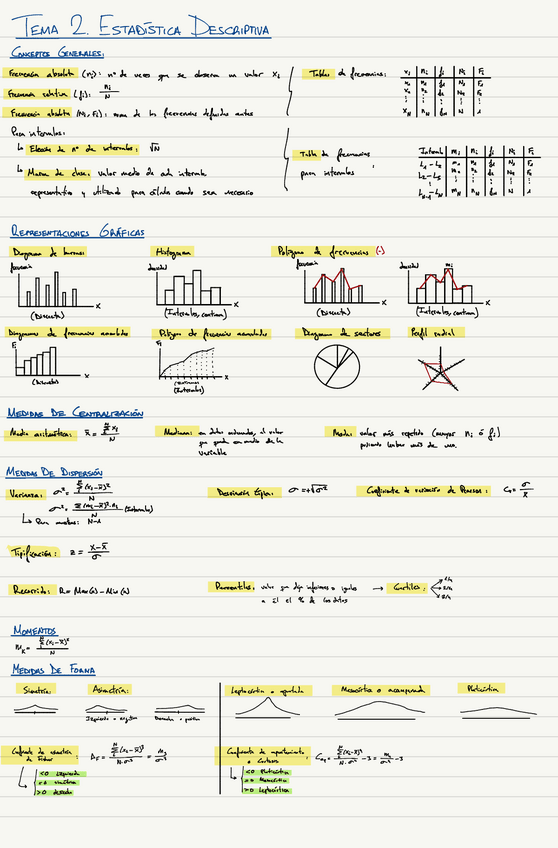 TEMA 2. ESTADÍSTICA DESCRIPTIVA
CONCEPTOS GENERALES:
Frecuencia absoluta (ni): nº de veces que se observa un valor xi
Frecuencia relativa (fi): ni/N
Frecuencia absoluta (Ni, Fi): suma de las frecuencias definidas antes
Para intervalos:
Elección de nº de intervalos: √N
Marca de clase: valor medio de cada intervalo
representativo y utilizado para cálculo cuando sea necesario
Tablas de frecuencias:
xi | ni | fi | Ni | Fi
Tabla de frecuencias
para intervalos
Intervalo | ni | fi | Ni | Fi
REPRESENTACIONES GRÁFICAS
Diagrama de barras:
Histograma
Polígono de frecuencias (-)
frecuencia
densidad
frecuencia
densidad
mi
x
x
x
x
(Discreta)
(Intervalos, continua)
(Discreta)
(Intervalos, continua)
Diagrama de frecuencias acumuladas
Polígono de frecuencias acumuladas
Diagrama de sectores
Perfil radial
Fi
Fi
x
x
(Discreta)
(Intervalos)
MEDIDAS DE CENTRALIZACIÓN
Media aritmética: x̄ = Σxi/N
Mediana: en datos ordenados, el valor
que queda en medio de la
variable
Moda: valor más repetido (mayor ni ó fi)
pudiendo haber más de uno.
MEDIDAS DE DISPERSIÓN
Varianza: σ² = Σ(xi-x̄)²/N
σ² = Σ(mi-x̄)²·ni/N (Intervalos)
Para muestras: N-1
Desviación típica: σ = +√σ²
Coeficiente de variación de Pearson: Cv = σ/x̄
Tipificación: z = (x-x̄)/σ
Recorrido: R = Max(x) - Min(x)
Percentiles: valor que deja inferiores o iguales
a él el % de los datos
→ Cuartiles:
1/4
2/4
3/4
MOMENTOS
MEDIDAS DE FORMA
Simetría:
Asimetría:
Izquierda o negativa
Derecha o positiva
Leptocúrtica o apuntada
Mesocúrtica o acampanada
Platicúrtica
Coeficiente de asimetría
de Fisher
<0 Izquierda
=0 simétrica
>0 derecha
Coeficiente de apuntamiento
o Curtosis
<0 Platicúrtica
=0 Mesocúrtica
>0 Leptocúrtica